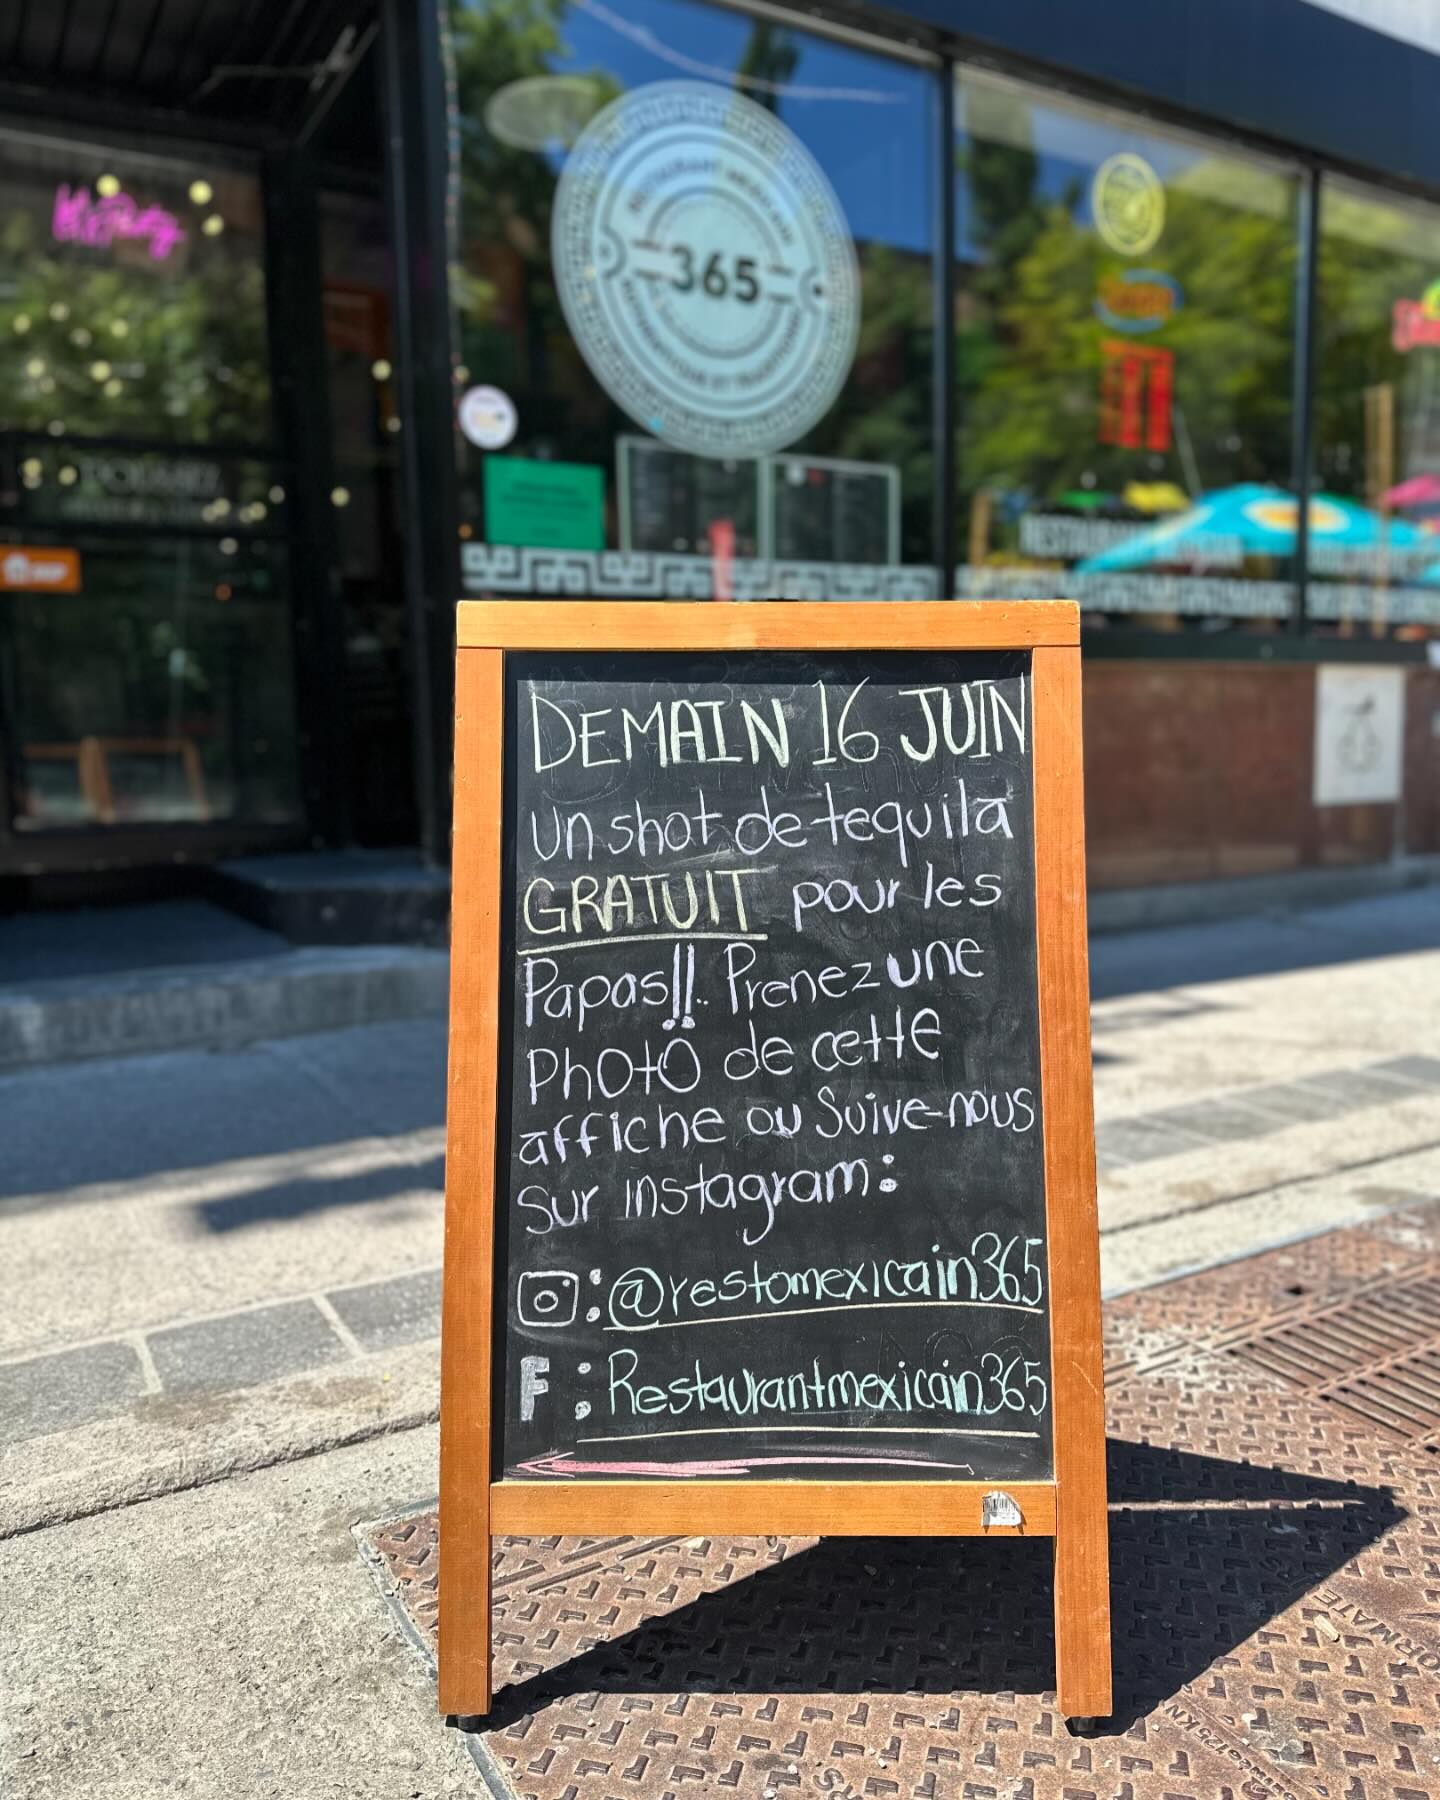 365
DEMAIN 16 JUIN
un shot de tequila
GRATUIT pour les
Papas!!.. Prenez une
Photo de cette
affiche ou Suive-nous
Sur instagram:
: @restomexicain365
F : Restaurantmexicain365